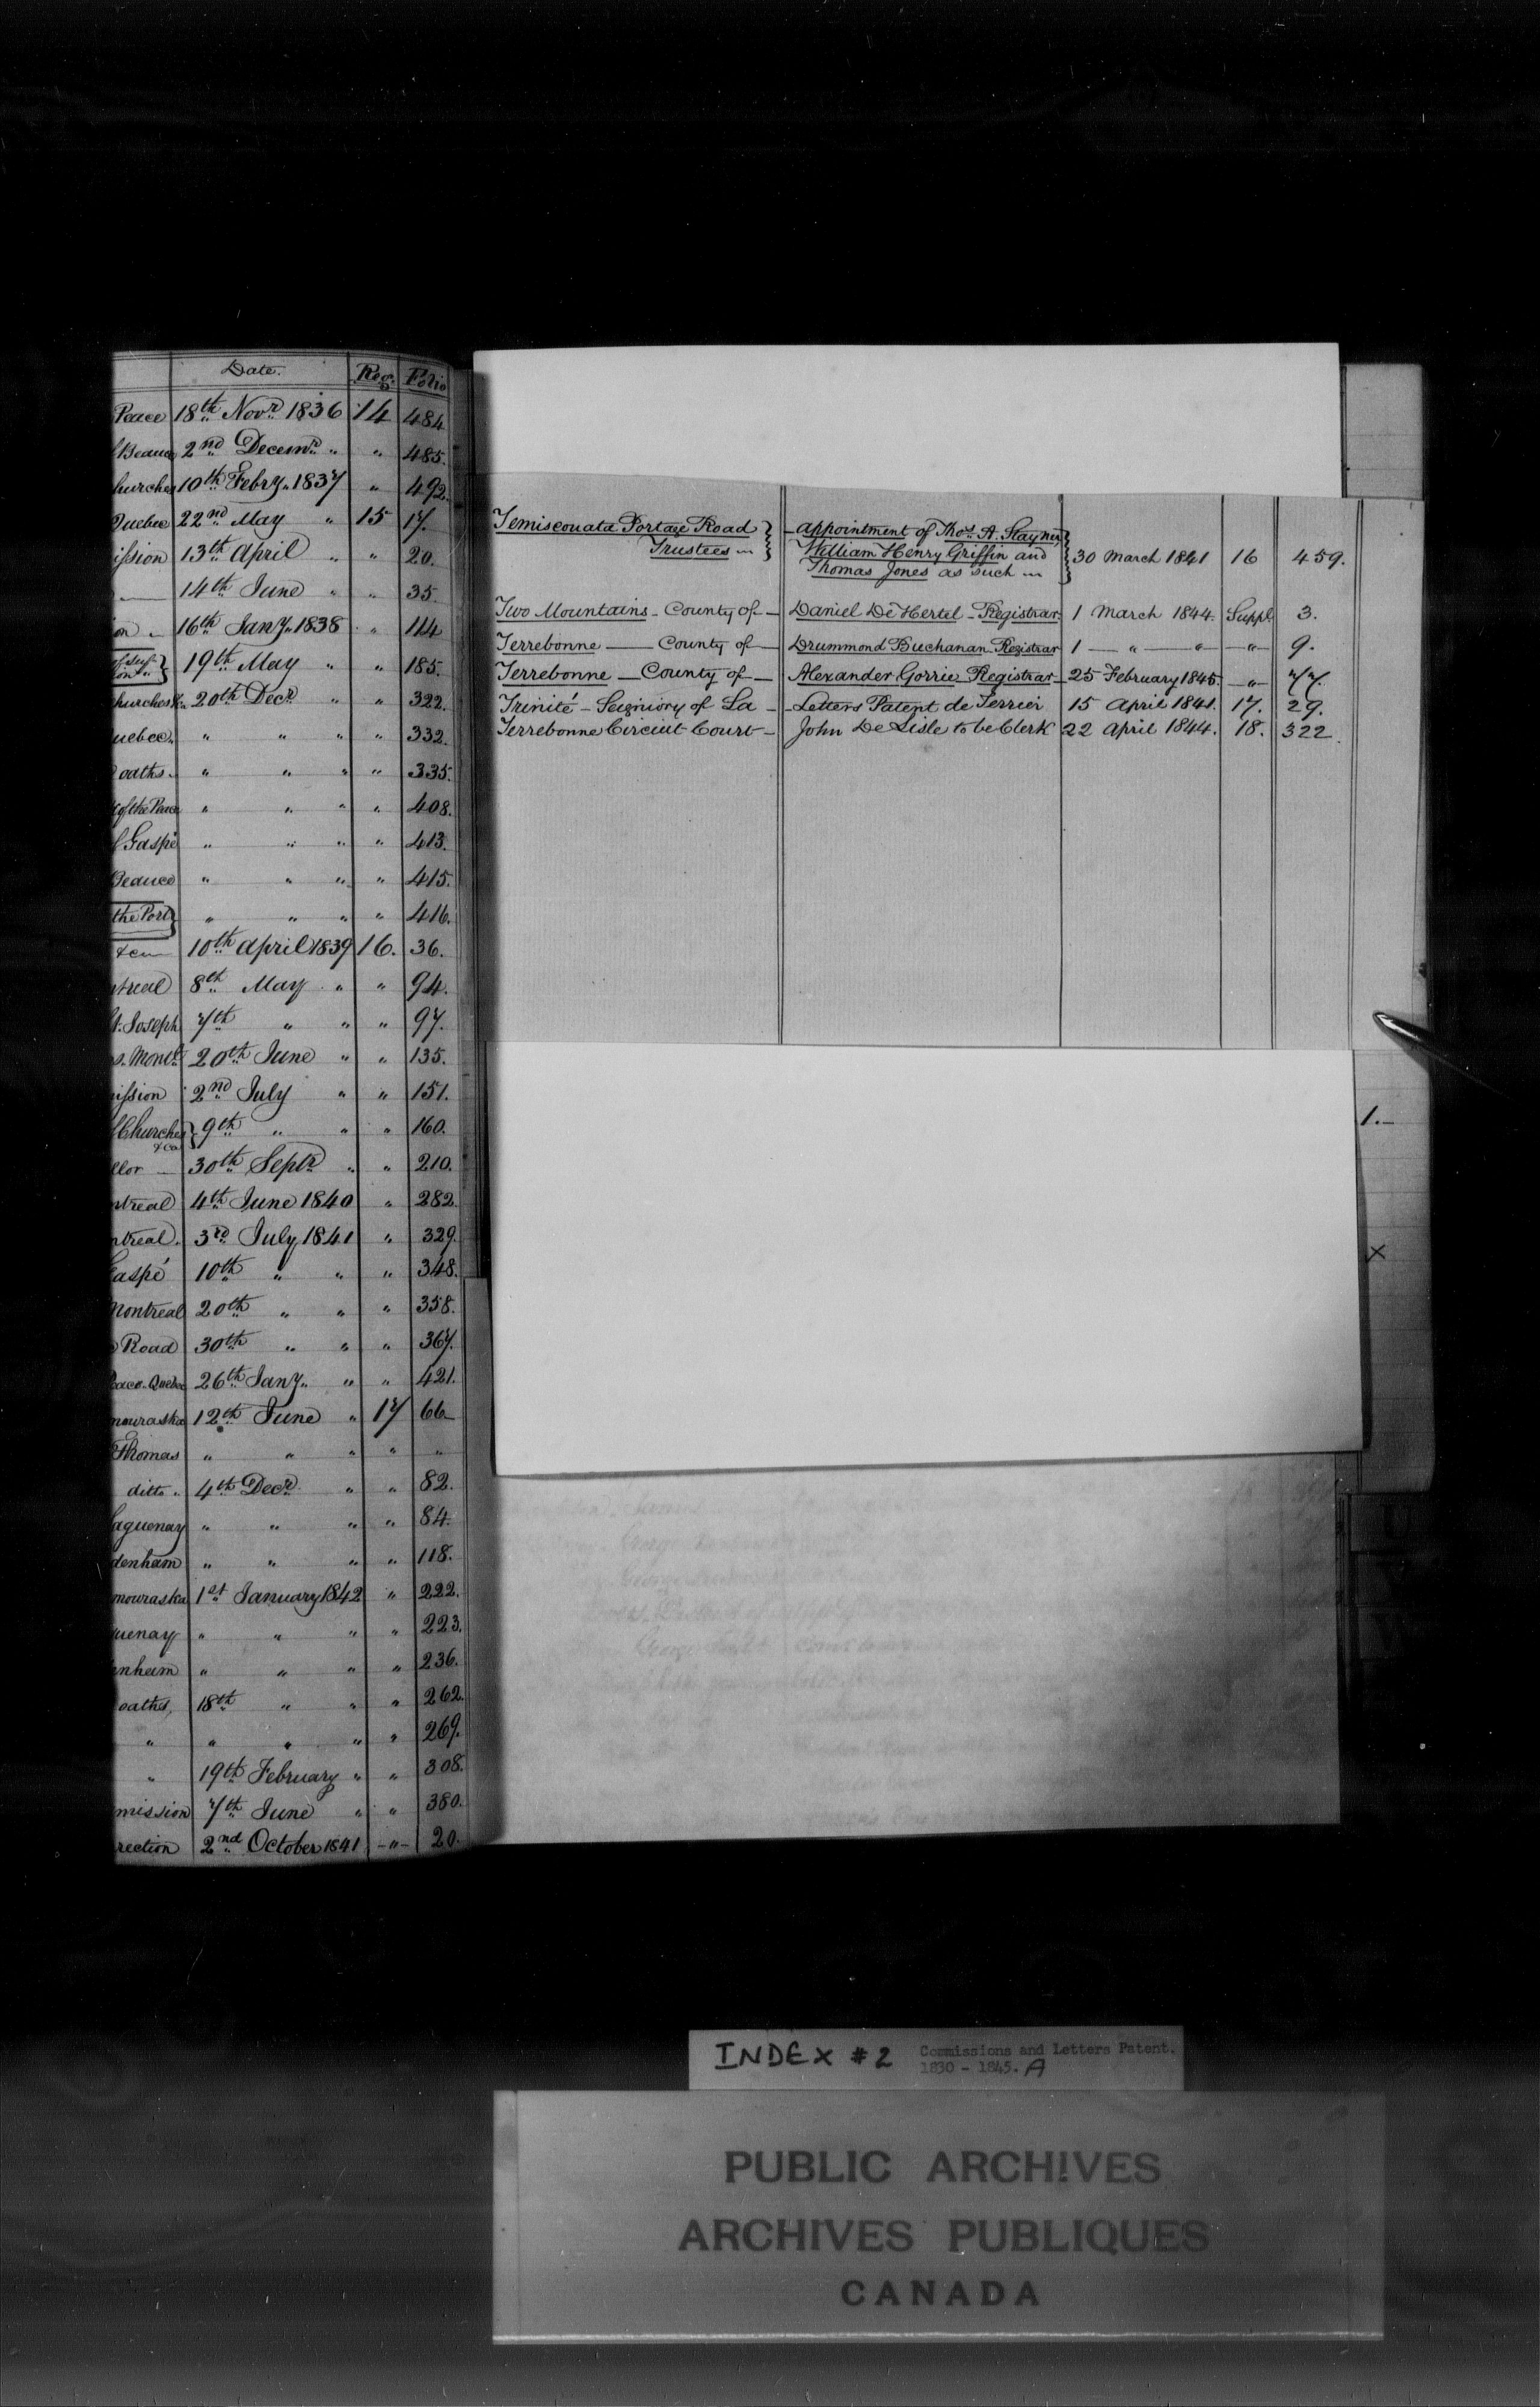 Date. Reg. Folio
Peace 18th Novr 1836 14 484
Beauce 2nd Decemr " " 485.
hurches 10th Febry. 1837 " 492.
Quebec 22nd May " 15 17.
ission 13th April " " 20.
— 14th June " " 35.
on — 16th Jany. 1838 " 144
19th May " " 185.
hurches &c. 20th Decr " " 322.
uebec. " " " " 332.
oaths. " " " " 335.
of the Peace " " " " 408.
Gaspé " " " " 413.
Beauce " " " " 415.
the Port } " " " " 416.
10th April 1839 16. 36.
treal 8th May " " 94.
t. Joseph 7th " " " 97.
s. Montl. 20th June " " 135.
ission 2nd July " " 151.
Churches &ca } 9th " " " 160.
llor — 30th Septr " " 210.
ntreal 4th June 1840 " 282
ntreal. 3rd July 1841 " 329.
aspé 10th " " " 348.
Montreal 20th " " " 358.
Road 30th " " " 367.
eace. Quebec 26th Jany. " " 421.
mouraska 12th June " 17 66
Thomas " " " " "
ditto " 4th Decr " " 82.
aguenay " " " " 84.
denham " " " " 118.
mouraska 1st January 1842 " 222.
uenay " " " " 223.
enham " " " " 236.
oaths, 18th " " " 262.
" " " " " 269.
" 19th February " " 308.
mission 7th June " " 380.
rection 2nd October 1841 -"- 20.
Temiscouata Portage Road } Appointment of Thos. A. Stayner,
Trustees — William Henry Griffin and } 30 March 1841 16 459.
Thomas Jones as such —
Two Mountains – County of – Daniel De Hertel – Registrar. 1 March 1844. Suppl. 3.
Terrebonne — County of — Drummond Buchanan Registrar 1 — " — " — " — 9.
Terrebonne — County of — Alexander Gorrie Registrar – 25 February 1845. — " — 77.
Trinité – Seigniory of La – Letters Patent de Terrier 15 April 1841. 17. 29.
Terrebonne Circuit Court – John De Lisle to be Clerk 22 April 1844. 18. 322.
1.–
X
INDEX #2 Commissions and Letters Patent.
1830 – 1845. A
PUBLIC ARCHIVES
ARCHIVES PUBLIQUES
CANADA